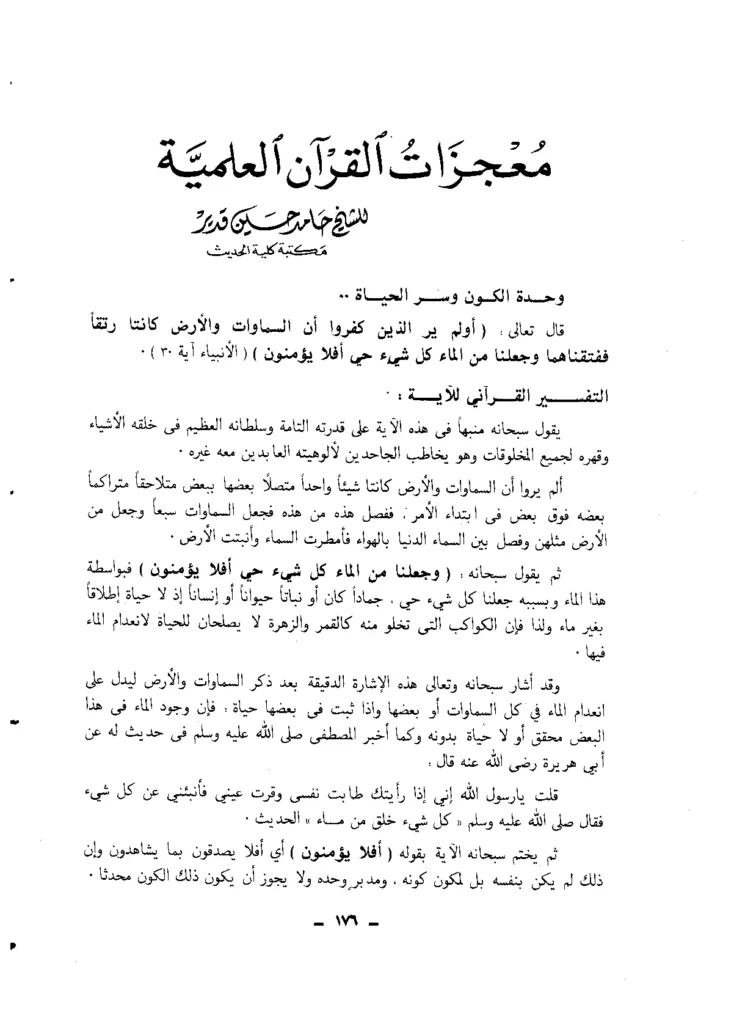 مُعْجِزَاتُ ٱلقُرْآن ٱلعِلميَّة
للشيخ حامد حسين قدير
مكتبة كلية الحديث
وحـدة الكـون وسـر الحيـاة ..
قال تعالى : ( أولم ير الذين كفروا أن السماوات والأرض كانتا رتقاً
ففتقناهما وجعلنا من الماء كل شيء حي أفلا يؤمنون ) ( الأنبياء آية ٣٠ ) .
التفسـير القـرآني للآيـة : .
يقول سبحانه منبهاً فى هذه الآية على قدرته التامة وسلطانه العظيم فى خلقه الأشياء
وقهره لجميع المخلوقات وهو يخاطب الجاحدين لألوهيته العابدين معه غيره .
ألم يروا أن السماوات والأرض كانتا شيئاً واحداً متصلاً بعضها ببعض متلاحقاً متراكماً
بعضه فوق بعض فى ابتداء الأمر . ففصل هذه من هذه فجعل السماوات سبعاً وجعل من
الأرض مثلهن وفصل بين السماء الدنيا بالهواء فأمطرت السماء وأنبتت الأرض .
ثم يقول سبحانه : ( وجعلنا من الماء كل شيء حي أفلا يؤمنون ) فبواسطة
هذا الماء وبسببه جعلنا كل شيء حي . جماداً كان أو نباتاً حيواناً أو إنساناً إذ لا حياة إطلاقاً
بغير ماء ولذا فإن الكواكب التى تخلو منه كالقمر والزهرة لا يصلحان للحياة لانعدام الماء
فيها .
وقد أشار سبحانه وتعالى هذه الإشارة الدقيقة بعد ذكر السماوات والأرض ليدل على
انعدام الماء في كل السماوات أو بعضها واذا ثبت فى بعضها حياة ، فإن وجود الماء فى هذا
البعض محقق أو لا حياة بدونه وكما أخبر المصطفى صلى الله عليه وسلم فى حديث له عن
أبي هريرة رضى الله عنه قال :
قلت يارسول الله إني إذا رأيتك طابت نفسى وقرت عيني فأنبئني عن كل شيء
فقال صلى الله عليه وسلم « كل شيء خلق من مـاء » الحديث .
ثم يختم سبحانه الآية بقوله ( أفلا يؤمنون ) أي أفلا يصدقون بما يشاهدون وإن
ذلك لم يكن بنفسه بل لمكون كونه . ومدبر وحده ولا يجوز أن يكون ذلك الكون محدثا .
– ١٧٦ –